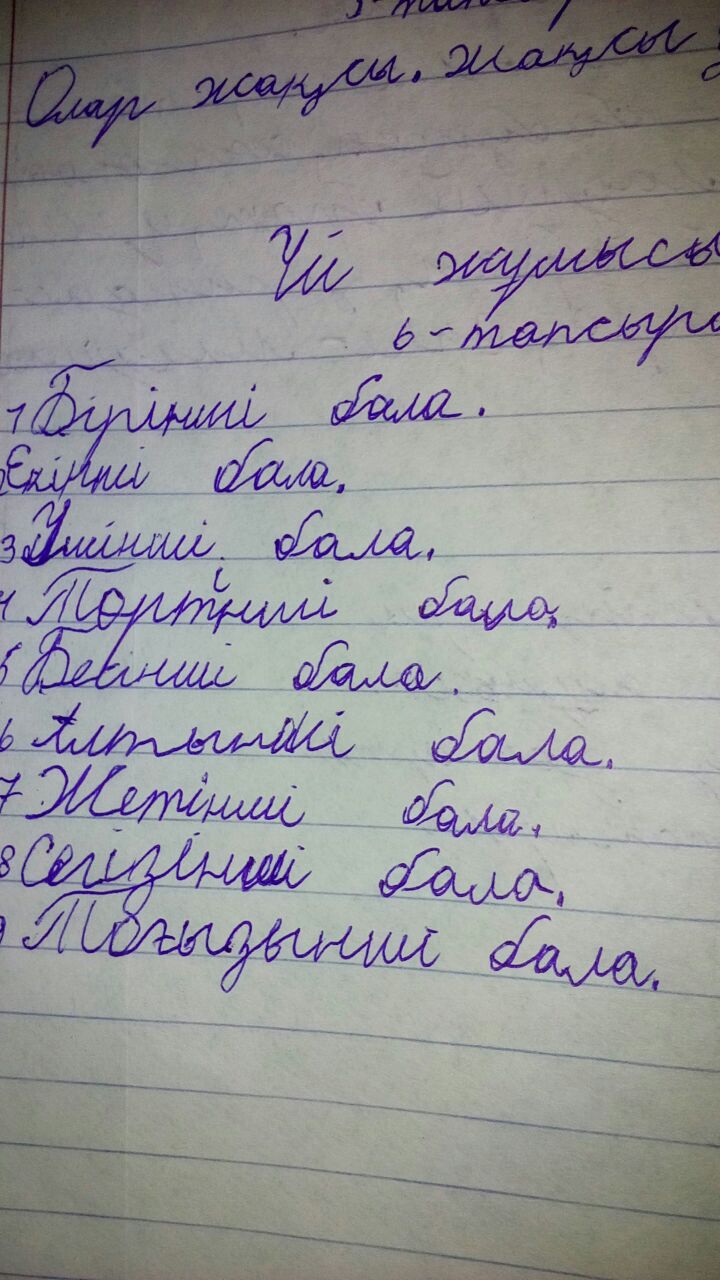 5-тапсыр
Олар жақсы. Жақсы
Үй жұмысы
6-тапсыра
1 Бірінші бала.
Екінші бала.
3 Үшінші бала.
4 Тортінші бала.
5 Бесінші бала.
6 Алтынші бала.
7 Жетінші бала.
8 Сегізінші бала.
9 Тоғызынші бала.